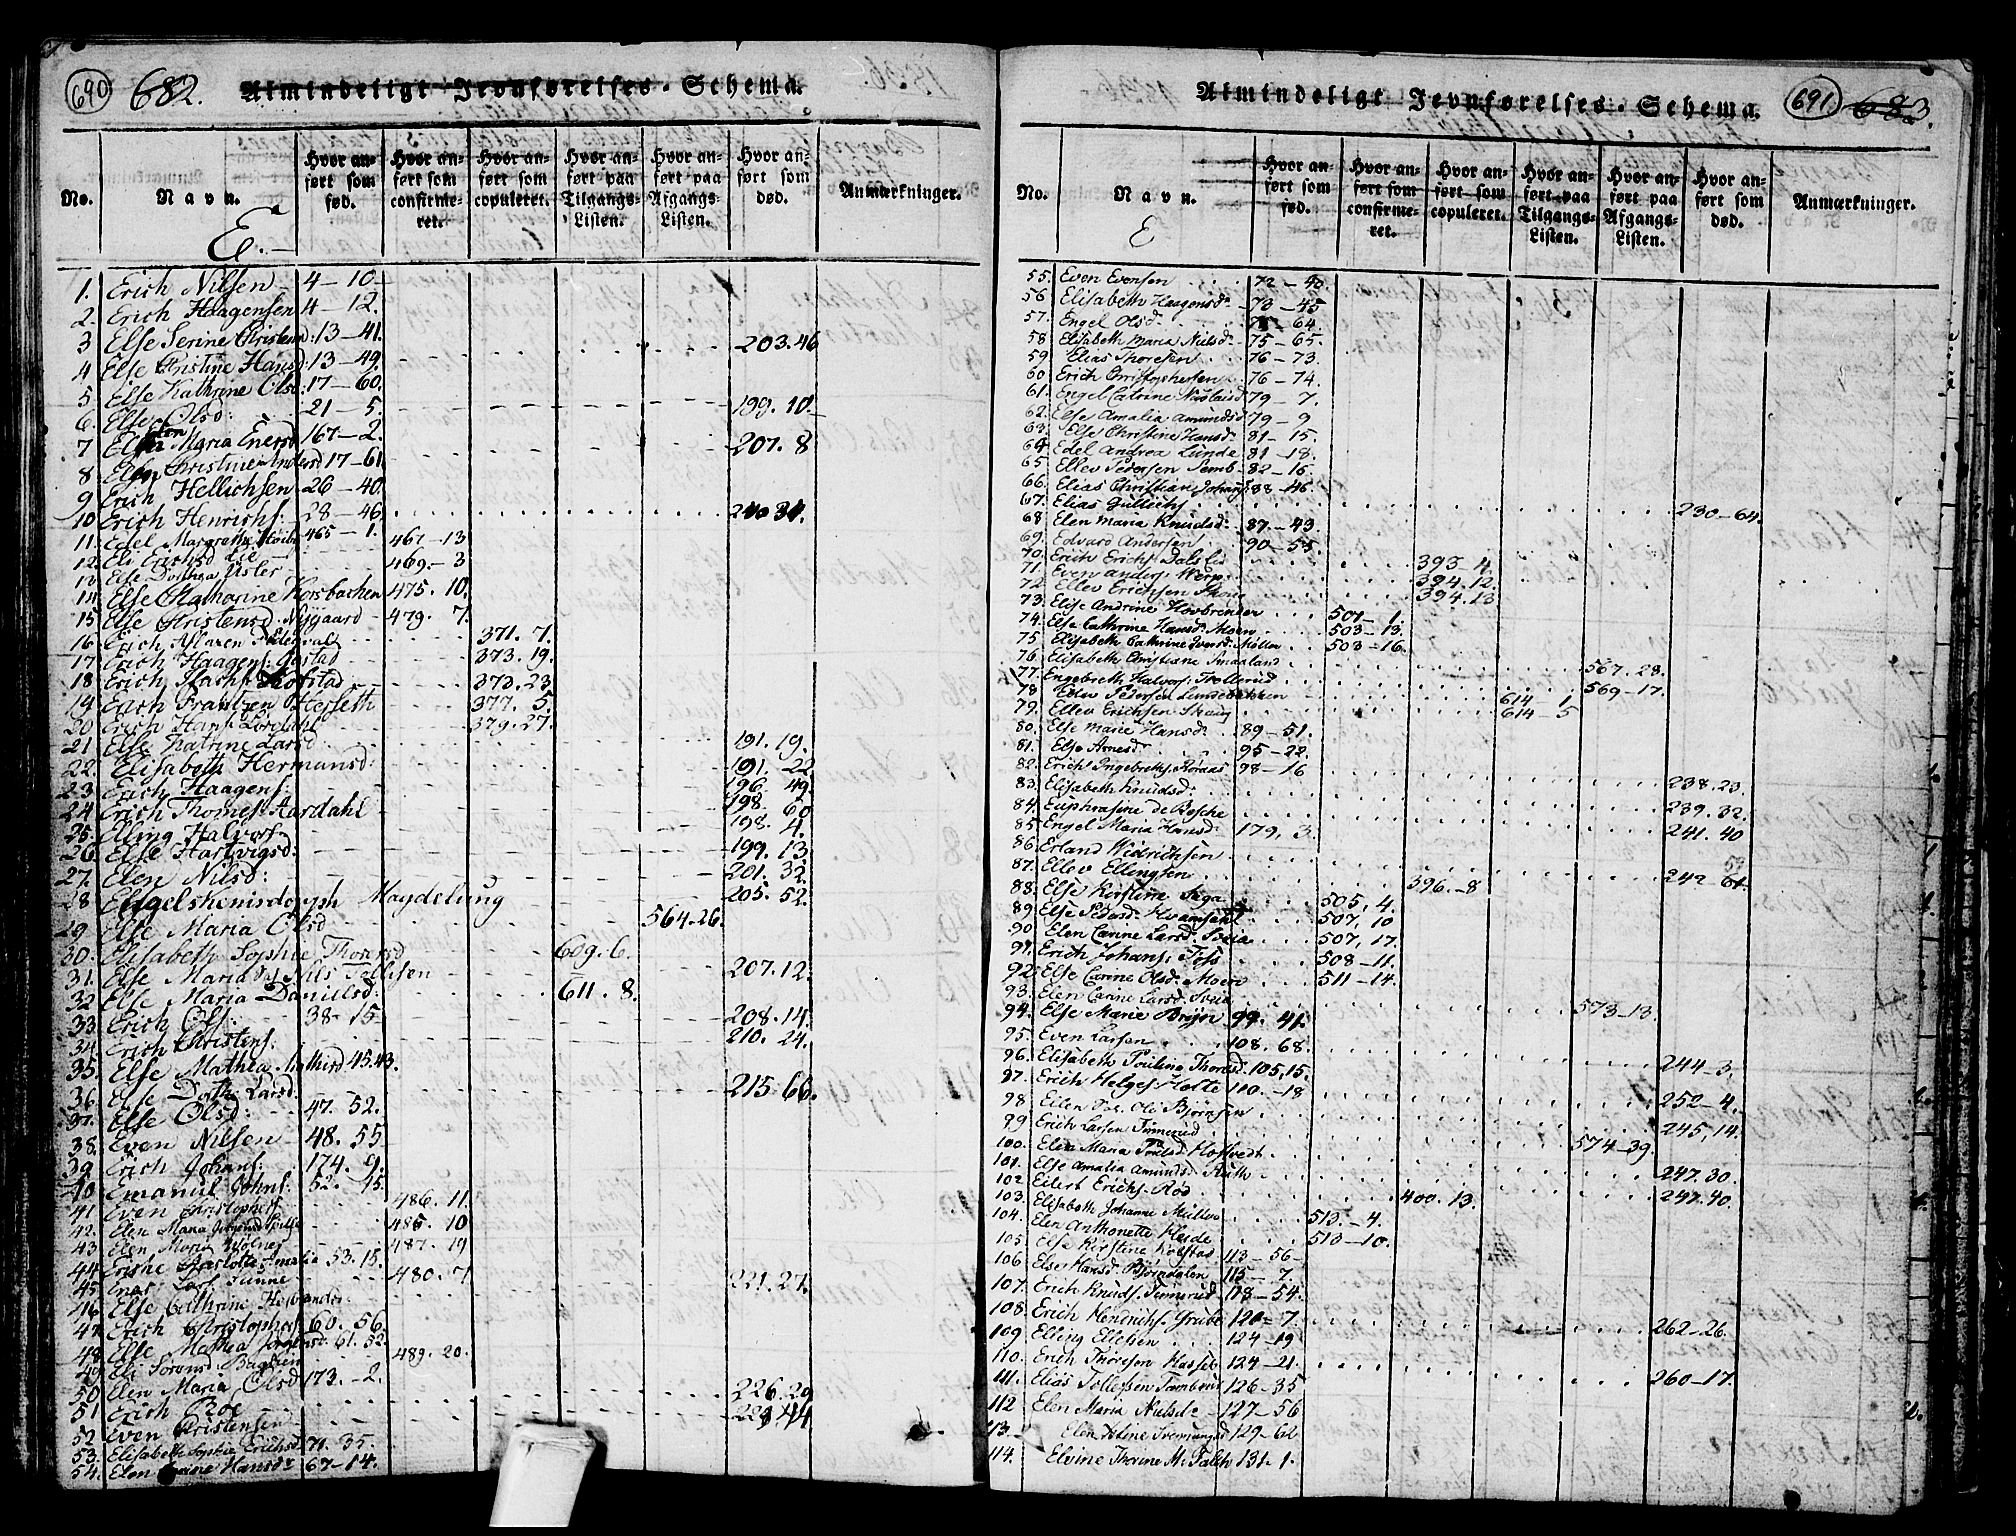 690 682. Almindeligt Jevnførelses-Schema.
No. Navn. Hvor anført som fød. Hvor anført som confirmeret. Hvor anført som copuleret. Hvor anført paa Tilgangs-Listen. Hvor anført paa Afgangs-Listen. Hvor anført som død. Anmærkninger.
E.
1. Erich Nilsen 4-10
2. Erich Haagensen 4-12.
3 Else Serine Christens: 13-41.
4 Else Christine Hansd: 13-49. 203.46
5 Else Kathrine Olsd: 17-60.
6. Else Olsd: 21-5. 199.10
7 Elen Maria Enersd 167-2. 207.8
8 Elen Christine Andersd 17-61
9 Erich Hellichsen 26-40.
10 Erich Henrichs: 28-46.
11. Edel Margrethe 465-1. 467-13
12. Eli Erichsd Lie 469-3
13 Else Dorthea Usler
14 Else Katharine Korsbachen 475.10.
15 Else Christensd. Nygaard 479.7.
16 Erich 371.7.
17 Erich Haagens: 373.19.
18 Erich 373.23
19 Erich Frantzen Hesleth 377.5.
20 Erich Hans: Lordahl 379.27.
21 Else Katrine Larsd: 191.19.
22. Elisabeth Hermansd: 191.22
23 Erich Haagens: 196.49
24 Erich Thomes: Aardahl 198.60
25 Elling Halvors: 198.4.
26 Else Hartvigsd: 199.13
27. Elen Nilsd: 201.32
28 Magdelung 205.52.
29 Else Maria Olsd 564.26.
30. Elisabeth Sophie Thorersd 609.6.
31. Else Maria Nils Tollefsen 207.12.
32 Else Maria Danielsd: 611.8.
33. Erich Ols: 38-15 208.14.
34 Erich Christens: 210.24.
35. Else Mathea 45.43.
36. Else Dorthe Larsd: 215.66.
37. Else Olsd: 47.52.
38. Even Nilsen 48.55
39 Erich Johans: 174.9.
40 Emanuel Johns: 52.15
41 Even Christophers: 486.11.
42. Elen Maria 486.10
43 Elen Maria 487.19
44 Charlotte Amalia 53.15.
45 Lars: 480.7 221.27.
46 Else Cathrine Hosbrænder
47 Erich Christophers 60.56
48 Else Mathea 61.52
49 Eli Sørensd. 489.20.
50 Elen Maria Olsd 173.-2. 226.29
51 Erich Roe
52 Even Christensen
53. Elisabeth Sophie Erichsd 71.35
54. Elen Hansd: 67-14.
Almindeligt Jevnførelses-Schema. 691 683.
No. Navn. Hvor anført som fød. Hvor anført som confirmeret. Hvor anført som copuleret. Hvor anført paa Tilgangs-Listen. Hvor anført paa Afgangs-Listen. Hvor anført som død. Anmærkninger.
E
55. Even Evensen 72-40
56 Elisabeth Haagensd: 73-45
57. Engel Olsd 75-64.
58 Elisabeth Maria Nielsd: 75-65.
59 Elias Thoresen 76-73.
60 Erich Christophersen 76-74.
61. Engel Catrine Nicolaisd 79-7.
62. Else Amalia Amundsd 79-9
63. Else Christine Hansd: 81-15.
64 Edel Andrea Lunde 81-18.
65 Ellev Pedersen Semb 82-16.
66. Elias Christian Johans: 88-46
67. Elias Gullichs: 230-64.
68. Elen Maria Knudsd: 87-43.
69. Edvard Andersen 90-55.
70. Erich Erichs: Dals Eie 393-4.
71. Even Anders: Werp 394.12.
72. Ellev Erichsen 394.13
73. Else Andrine Hovbrender 507-1.
74. Else Cathrine Hansd: Moen 503-13.
75 Elisabeth Cathrine Iversd: Møller 503-16.
76. Elisabeth Christiane Smaaland 567.28.
77. Engebreth Halvors: Trollerud 569-17.
78 Pedersen Lundebakken 614-1.
79. Ellev Erichsen Skaug 614-5
80. Else Marie Hansd: 89-51.
81. Else Arnesd: 95-22
82. Erich Ingebreths. 98-16
83. Elisabeth Knudsd: 238.23.
84. Euphrasine de Besche 239.32.
85 Engel Maria Hansd: 179,3. 241.40
86 Erland Widrichsen
87. Ellev Ellingsen 396.-8 242
88. Else Kirstina Saga 505,4.
89. Else Pedersd: 507,10
90 Elen Carine Larsd: 507,17.
91. Erich Johans: Foss 508-11.
92. Else Carine Olsd: Moen 511-14.
93. Elen Carine Larsd: 573-13.
94. Else Marie 99.41.
95. Even Larsen 108.68.
96. Elisabeth Pouline Thorsd: 105,15. 244-3.
97. Erich Helges: Holte 110.-18
98 Eilen Ole Bjørnsen 252-4.
99 Erich Larsen 245,14.
100. Elen Maria Hoftvedt 574-39.
101. Else Amalia Amundsd: 247.30.
102. Eilert Erichs: Rød 247.40.
103. Elisabeth Johanne Müller 400.13. 513.-4.
104. Elen Anthonette Heide 513-10.
105 Else Kirstine Kolstad 113-56
106. Else Hansd: Bjørndalen 115-7
107. Erich Knuds: 118-54.
108. Erich Henrichs: Grube 120-7 262-26.
109 Elling Ellefsen 124-19
110. Erich Thoresen Kassel 124-21.
111. Elias Tollefsen 126-35 260-17.
112 Elen Maria Nielsd: 127-56
113. 129-62
114. Elvine Thorine M: Falch 131-1.